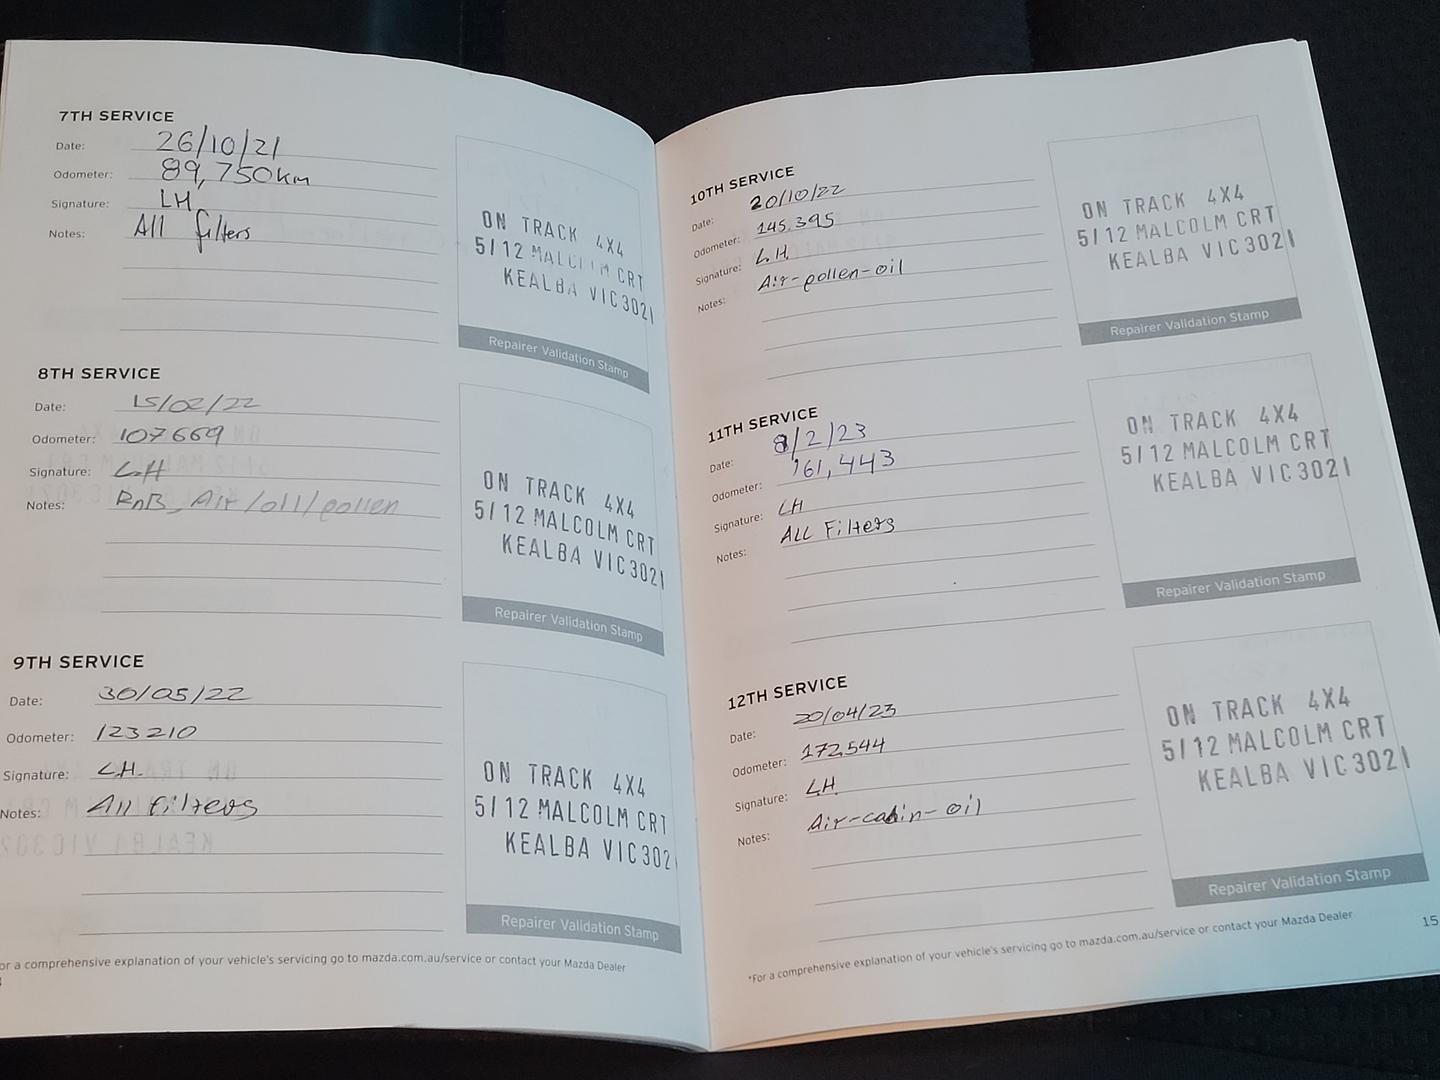 7TH SERVICE
Date: 26/10/21
Odometer: 89,750km
Signature: LH
Notes: All filters
ON TRACK 4X4
5/12 MALCOLM CRT
KEALBA VIC 3021
Repairer Validation Stamp
8TH SERVICE
Date: 15/02/22
Odometer: 107669
Signature: L.H
Notes: RnB, Air/oil/pollen
ON TRACK 4X4
5/12 MALCOLM CRT
KEALBA VIC 3021
Repairer Validation Stamp
9TH SERVICE
Date: 30/05/22
Odometer: 123210
Signature: L.H.
Notes: All filters
ON TRACK 4X4
5/12 MALCOLM CRT
KEALBA VIC 302
Repairer Validation Stamp
or a comprehensive explanation of your vehicle's servicing go to mazda.com.au/service or contact your Mazda Dealer
10TH SERVICE
Date: 20/10/22
Odometer: 145,395
Signature: L.H.
Notes: Air-pollen-oil
ON TRACK 4X4
5/12 MALCOLM CRT
KEALBA VIC 3021
Repairer Validation Stamp
11TH SERVICE
Date: 8/2/23
Odometer: 161,443
Signature: LH
Notes: ALL Filters
ON TRACK 4X4
5/12 MALCOLM CRT
KEALBA VIC 3021
Repairer Validation Stamp
12TH SERVICE
Date: 20/04/23
Odometer: 172,544
Signature: L.H.
Notes: Air-cabin-oil
ON TRACK 4X4
5/12 MALCOLM CRT
KEALBA VIC 3021
Repairer Validation Stamp
*For a comprehensive explanation of your vehicle's servicing go to mazda.com.au/service or contact your Mazda Dealer
15